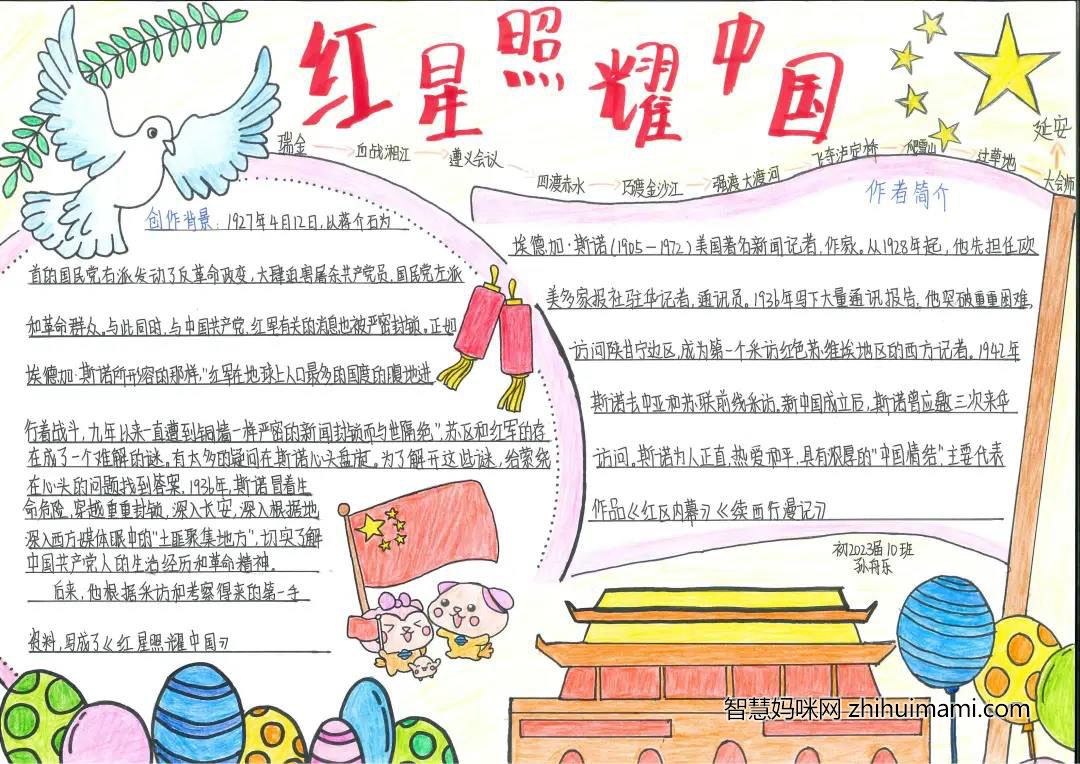 红星照耀中国
瑞金
血战湘江
遵义会议
四渡赤水
巧渡金沙江
强渡大渡河
飞夺泸定桥
爬雪山
过草地
大会师
延安
创作背景:1927年4月12日,以蒋介石为
首的国民党右派发动了反革命政变,大肆迫害屠杀共产党员,国民党左派
和革命群众。与此同时,与中国共产党、红军有关的消息也被严密封锁。正如
埃德加·斯诺所形容的那样,“红军在地球上人口最多的国度的腹地进
行着战斗,九年以来一直遭到铜墙一样严密的新闻封锁而与世隔绝”,苏区和红军的存
在成了一个难解的谜。有太多的疑问在斯诺心头盘旋。为了解开这些谜,给萦绕
在心头的问题找到答案,1936年,斯诺冒着生
命危险,穿越重重封锁,深入长安,深入根据地,
深入西方媒体眼中的“土匪聚集地方”,切实了解
中国共产党人的生活经历和革命精神。
后来,他根据采访和考察得来的第一手
资料,写成了《红星照耀中国》
作者简介
埃德加·斯诺(1905—1972)美国著名新闻记者,作家。从1928年起,他先担任欧
美多家报社驻华记者、通讯员。1936年写下大量通讯报告,他突破重重困难,
访问陕甘宁边区,成为第一个采访红色苏维埃地区的西方记者。1942年
斯诺去中亚和苏联前线采访。新中国成立后,斯诺曾应邀三次来华
访问。斯诺为人正直,热爱和平,具有浓厚的“中国情结”,主要代表
作品《红区内幕》《续西行漫记》
初2023届10班
孙舟乐
智慧妈咪网 zhihuimami.com